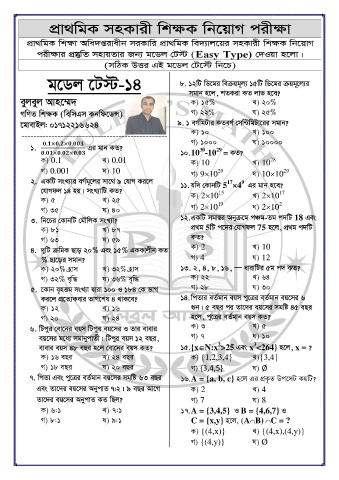 প্রাথমিক সহকারী শিক্ষক নিয়োগ পরীক্ষা
প্রাথমিক শিক্ষা অধিদপ্তরাধীন সরকারি প্রাথমিক বিদ্যালয়ের সহকারী শিক্ষক নিয়োগ
পরীক্ষার প্রস্তুতি সহায়তার জন্য মডেল টেস্ট (Easy Type) দেওয়া হলো।
(সঠিক উত্তর এই মডেল টেস্টে নিচে)
মডেল টেস্ট-১৪
বুলবুল আহম্মেদ
গণিত শিক্ষক (বিসিএস কনফিডেন্স)
মোবাইল: ০১৭১২২১৬৬২৪
১. 0.1×0.2×0.003 / 0.01×0.02×0.03 এর মান কত?
ক) 0.1 খ) 0.01
গ) 0.001 ঘ) 10
২. একটি সংখ্যার বর্গমূলের সাথে ৯ যোগ করলে
যোগফল ১৪ হয়। সংখ্যাটি কত?
ক) ৫ খ) ২৫
গ) ৩৫ ঘ) ৪০
৩. নিচের কোনটি মৌলিক সংখ্যা?
ক) ৮১ খ) ৮৭
গ) ৬৩ ঘ) ৫৯
৪. দুটি ক্রমিক ছাড় ২০% এবং ১৫% এককালীন কত
% ছাড়ের সমান?
ক) ২০% হ্রাস খ) ৩২% হ্রাস
গ) ৩২% বৃদ্ধি ঘ) ৩৬% বৃদ্ধি
৫. কোন বৃহত্তম সংখ্যা দ্বারা ১০০ ও ১৮৪ কে ভাগ
করলে প্রত্যেকবার ভাগশেষ ৪ থাকবে?
ক) ১২ খ) ১৬
গ) ২০ ঘ) ২৪
৬. টিপুর বোনের বয়স টিপুর বয়সের ও তার বাবার
বয়সের মধ্যে সমানুপাতী। টিপুর বয়স ১২ বছর,
বাবার বয়স ৪৮ বছর হলে বোনের বয়স কত?
ক) ১৬ বছর খ) ২৪ বছর
গ) ১৮ বছর ঘ) ২০ বছর
৭. পিতা এবং পুত্রের বর্তমান বয়সের সমষ্টি ৬০ বছর
এবং তাদের বয়সের অনুপাত ৭:২। ৯ বছর আগে
তাদের বয়সের অনুপাত কত ছিল?
ক) ৬:১ খ) ৭:১
গ) ৮:১ ঘ) ৯:১
৮. ১২টি ডিমের বিক্রয়মূল্য ১৫টি ডিমের ক্রয়মূল্যের
সমান হলে, শতকরা কত লাভ হবে?
ক) ১৫% খ) ২০%
গ) ২২% ঘ) ২৫%
৯. ১ বর্গমিটার কতবর্গ সেন্টিমিটারের সমান?
ক) ১০ খ) ১০০
গ) ১০০০ ঘ) ১০০০০
১০. 10³⁰-10²⁹ = কত?
ক) 10 খ) 10²⁸
গ) 9×10²⁹ ঘ) 10×10²⁹
১১. যদি কোনটি 5¹⁷×4⁹ এর মান হবে?
ক) 2×10¹⁵ খ) 2×10¹⁷
গ) 2×10¹⁹ ঘ) 2×10²
১২.একটি সমান্তর অনুক্রমে পঞ্চম-তম পদটি 18 এবং
প্রথম 5টি পদের যোগফল 75 হলে, প্রথম পদটি
কত?
ক) 2 খ) 10
গ) 4 ঘ) 12
১৩. ২, ৪, ৮, ১৬, — ধারাটির ৫ম পদ কত?
ক) ২২ খ) ৬৪
গ) ২৮ ঘ) ৩০
১৪.পিতার বর্তমান বয়স পুত্রের বর্তমান বয়সের ৬
গুন। ৫ বছর পর তাদের বয়সের সমষ্টি ৪৫ বছর
হলে, পুত্রের বর্তমান বয়স কত?
ক) ৩ খ) ৫
গ) ৭ ঘ) ১০
১৫.{x∈N:x²>25 এবং x³<264} হলে, x = ?
ক) {1,2,3,4} খ) {3,4}
গ) {3,4,5} ঘ) Ø
১৬.A = {a, b, c} হলে এর প্রকৃত উপসেট কয়টি?
ক) 2 খ) 4
গ) 7 ঘ) 8
১৭.A = {3,4,5} ও B = {4,6,7} ও
C = {x,y} হলে, (A∩B)×C = ?
ক) {(4,x)} খ) {(4,x),(4,y)}
গ) {(4,y)} ঘ) Ø